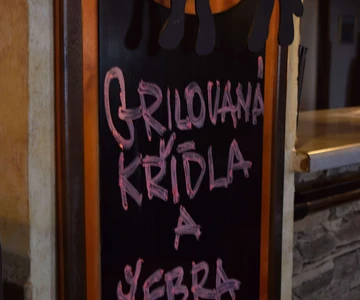 GRILOVANÁ
KŘÍDLA
A
ŽEBRA